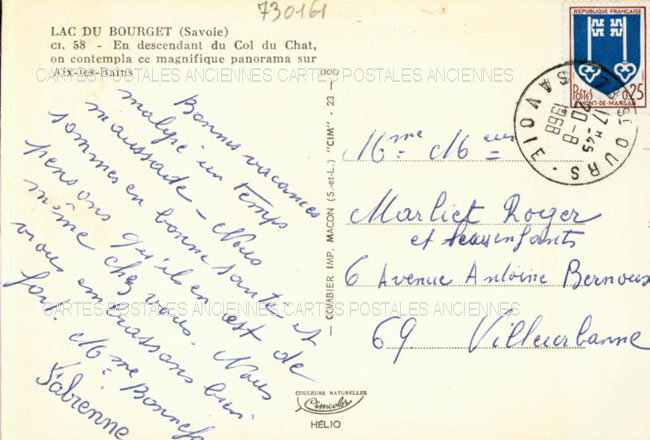 730161
LAC DU BOURGET (Savoie)
CI. 58 - En descendant du Col du Chat,
on contempla ce magnifique panorama sur
Aix-les-Bains
CARTES POSTALES ANCIENNES CARTES POSTALES ANCIENNES
REPUBLIQUE FRANÇAISE
POSTES 0,25
MONT-DE-MARSAN
17 H 45
20-8
1968
OURS - SAVOIE
Bonnes vacances
malgré un temps
maussade - Nous
sommes en bonne santé et
pensons qu'il en est de
même chez vous. Nous
vous embrassons bien
fort. Mme Bonnef
Fabienne
COMBIER IMP. MACON (S.-et-L.) "CIM" - 23 -
Mme M eur
Marliet Roger
et leurs enfants
6 Avenue Antoine Bernoux
CARTES POSTALES ANCIENNES CARTES POSTALES ANCIENNES
69 Villeurbanne
COULEURS NATURELLES
Cimcolor
HÉLIO